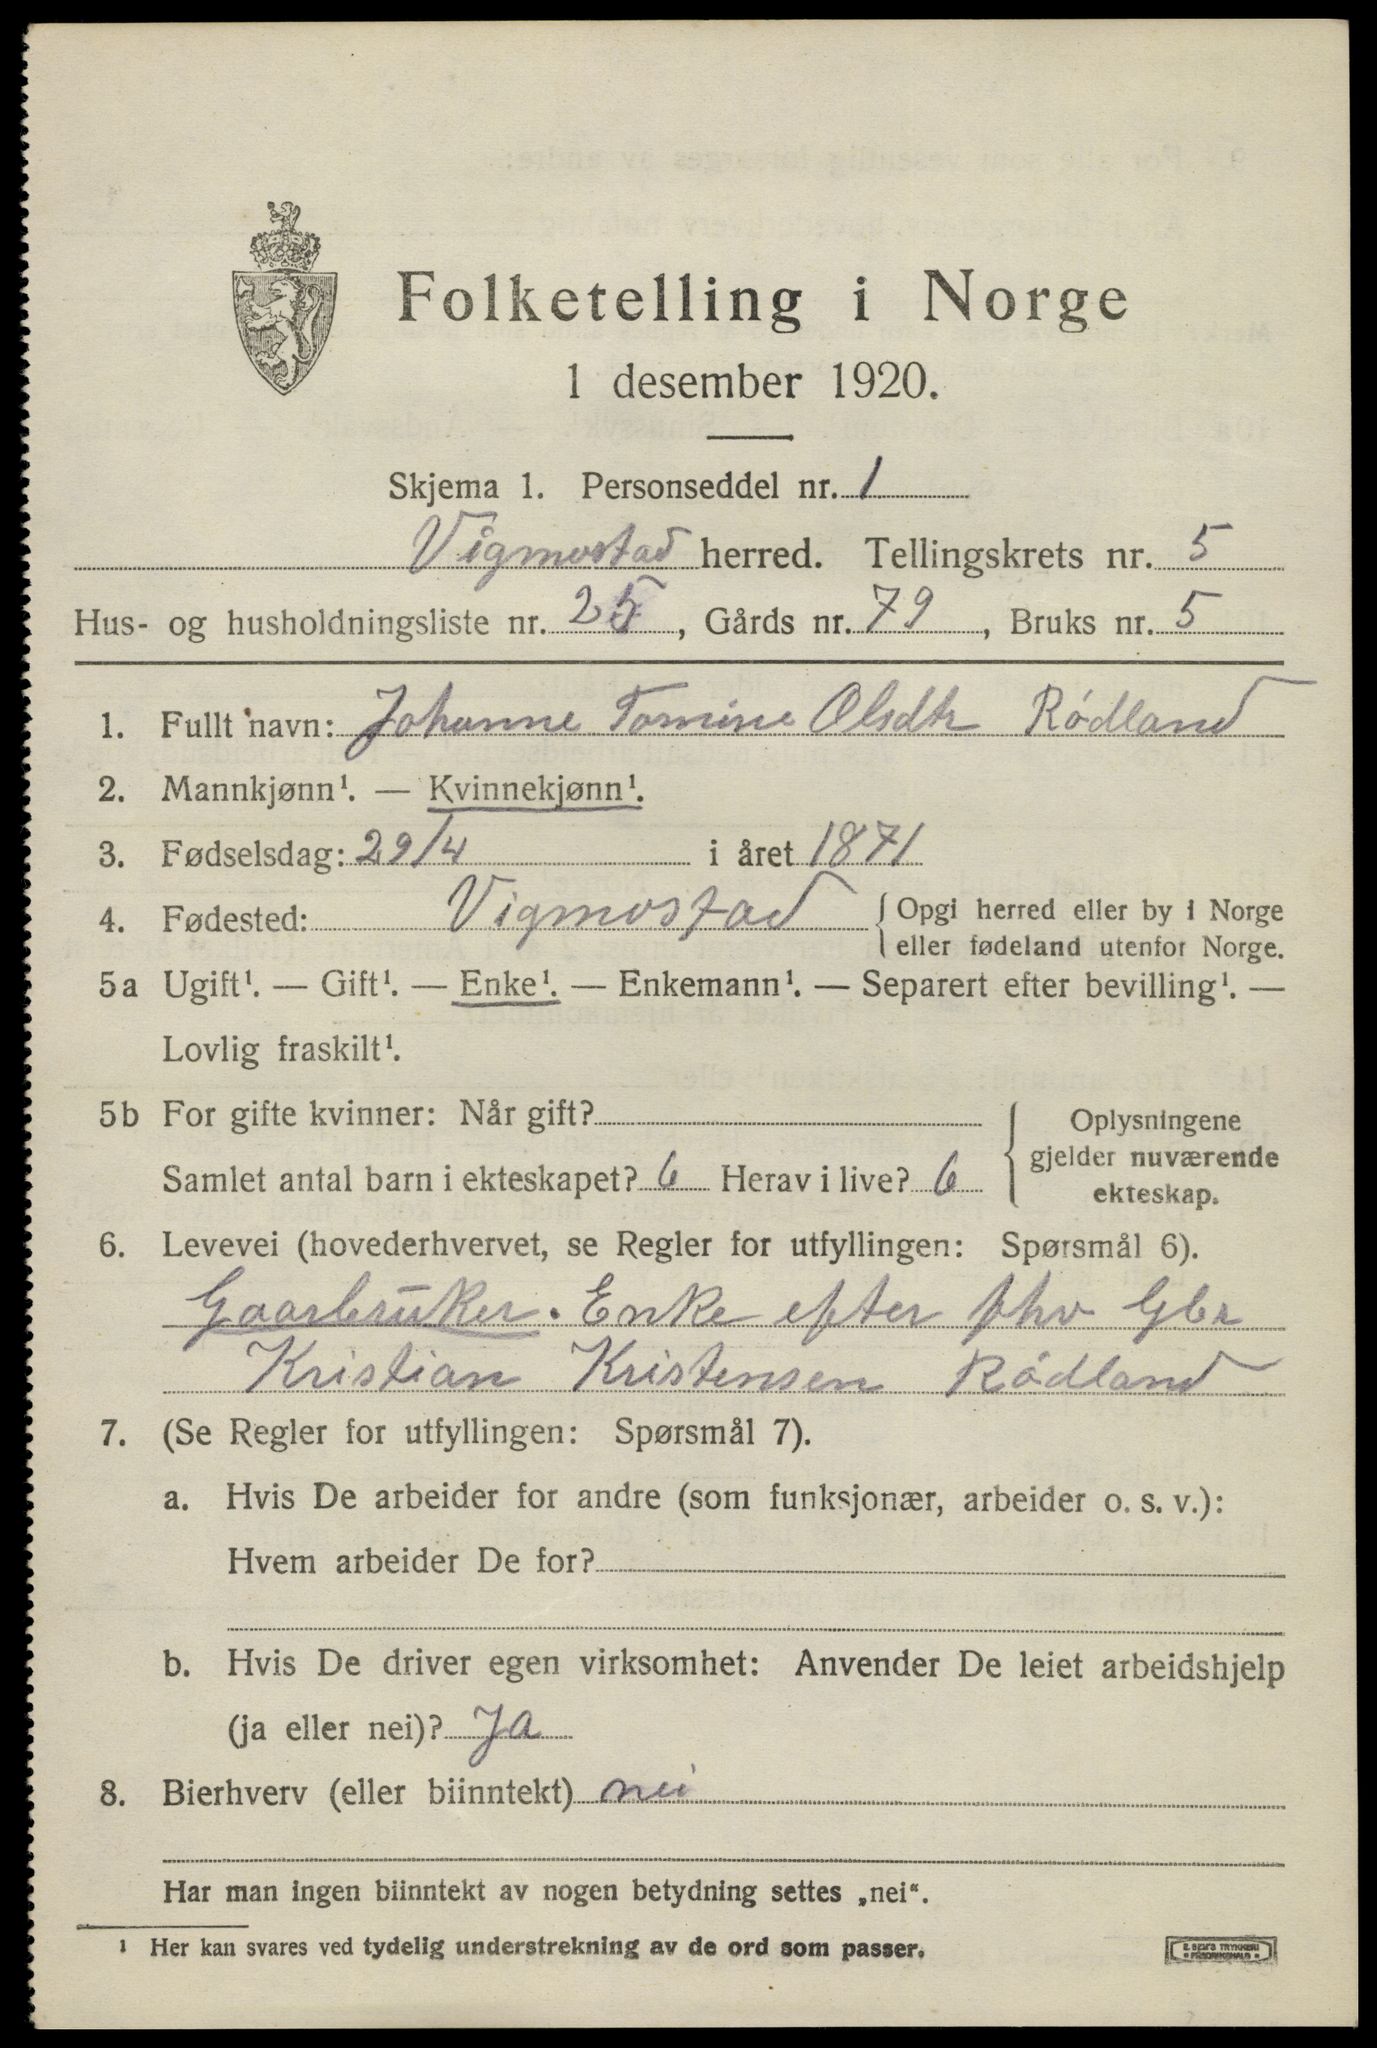 Folketelling i Norge
1 desember 1920.
Skjema 1. Personseddel nr. 1
Vigmostad herred. Tellingskrets nr. 5
Hus- og husholdningsliste nr. 25, Gårds nr. 79, Bruks nr. 5
1. Fullt navn: Johanne Tomine Olsdtr Rødland
2. Mannkjønn¹. — Kvinnekjønn¹.
3. Fødselsdag: 29/4 i året 1871
4. Fødested: Vigmostad {Opgi herred eller by i Norge
eller fødeland utenfor Norge.
5a Ugift¹. — Gift¹. — Enke¹. — Enkemann¹. — Separert efter bevilling¹. —
Lovlig fraskilt¹.
5b For gifte kvinner: Når gift?
Samlet antal barn i ekteskapet? 6 Herav i live? 6
Oplysningene
gjelder nuværende
ekteskap.
6. Levevei (hovederhvervet, se Regler for utfyllingen: Spørsmål 6).
Gaarbruker. Enke efter fhv Gbr
Kristian Kristensen Rødland
7. (Se Regler for utfyllingen: Spørsmål 7).
a. Hvis De arbeider for andre (som funksjonær, arbeider o. s. v.):
Hvem arbeider De for?
b. Hvis De driver egen virksomhet: Anvender De leiet arbeidshjelp
(ja eller nei)? Ja
8. Bierhverv (eller biinntekt) nei
Har man ingen biinntekt av nogen betydning settes „nei“.
¹ Her kan svares ved tydelig understrekning av de ord som passer.
E. SEM'S TRYKKERI
FREDRIKSHALD